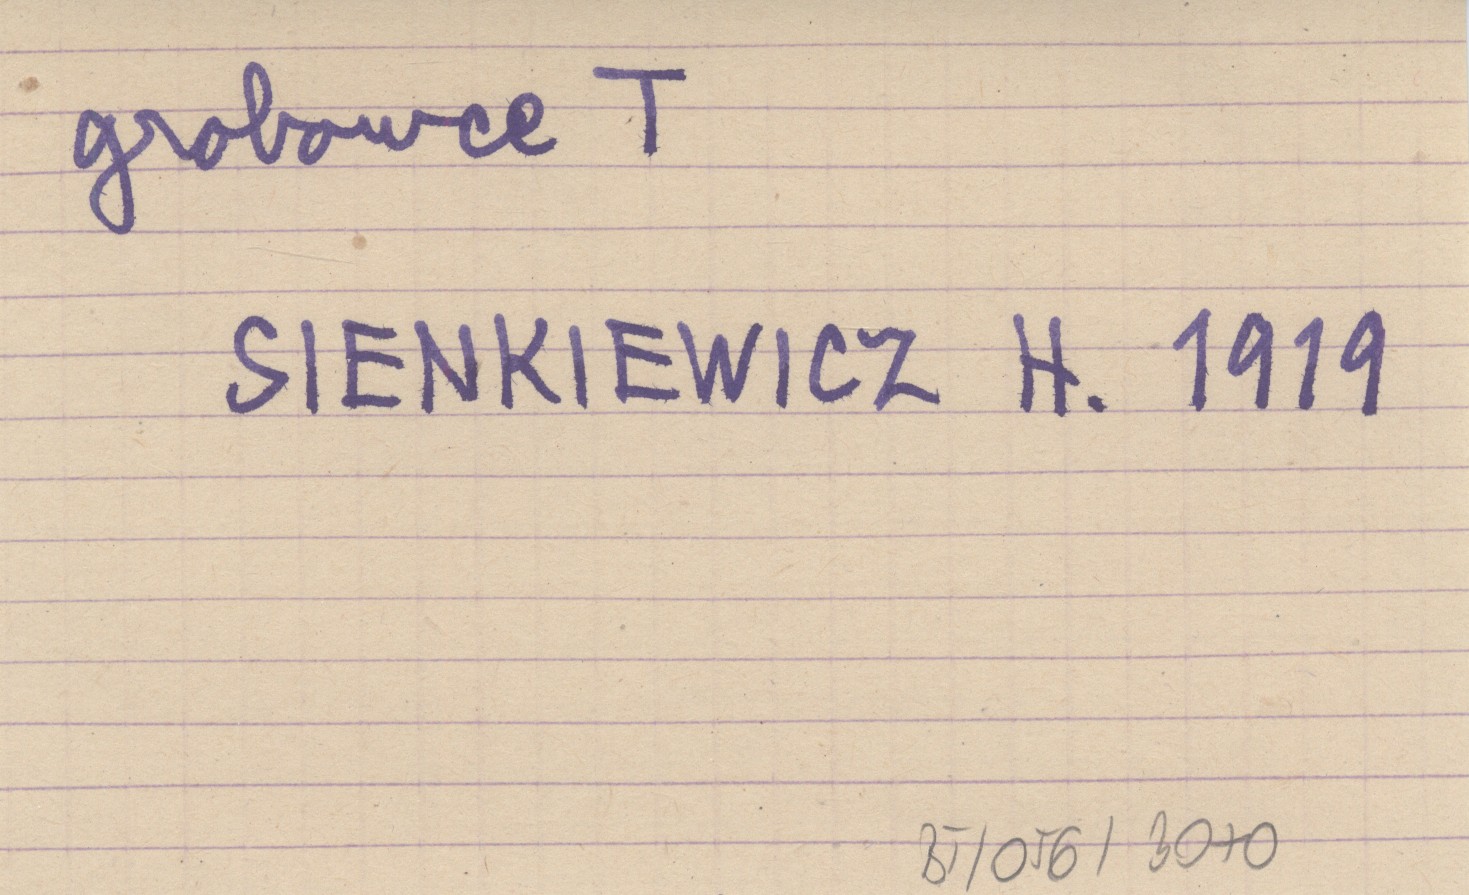 grobowce T
SIENKIEWICZ H. 1919
BT/056/3070